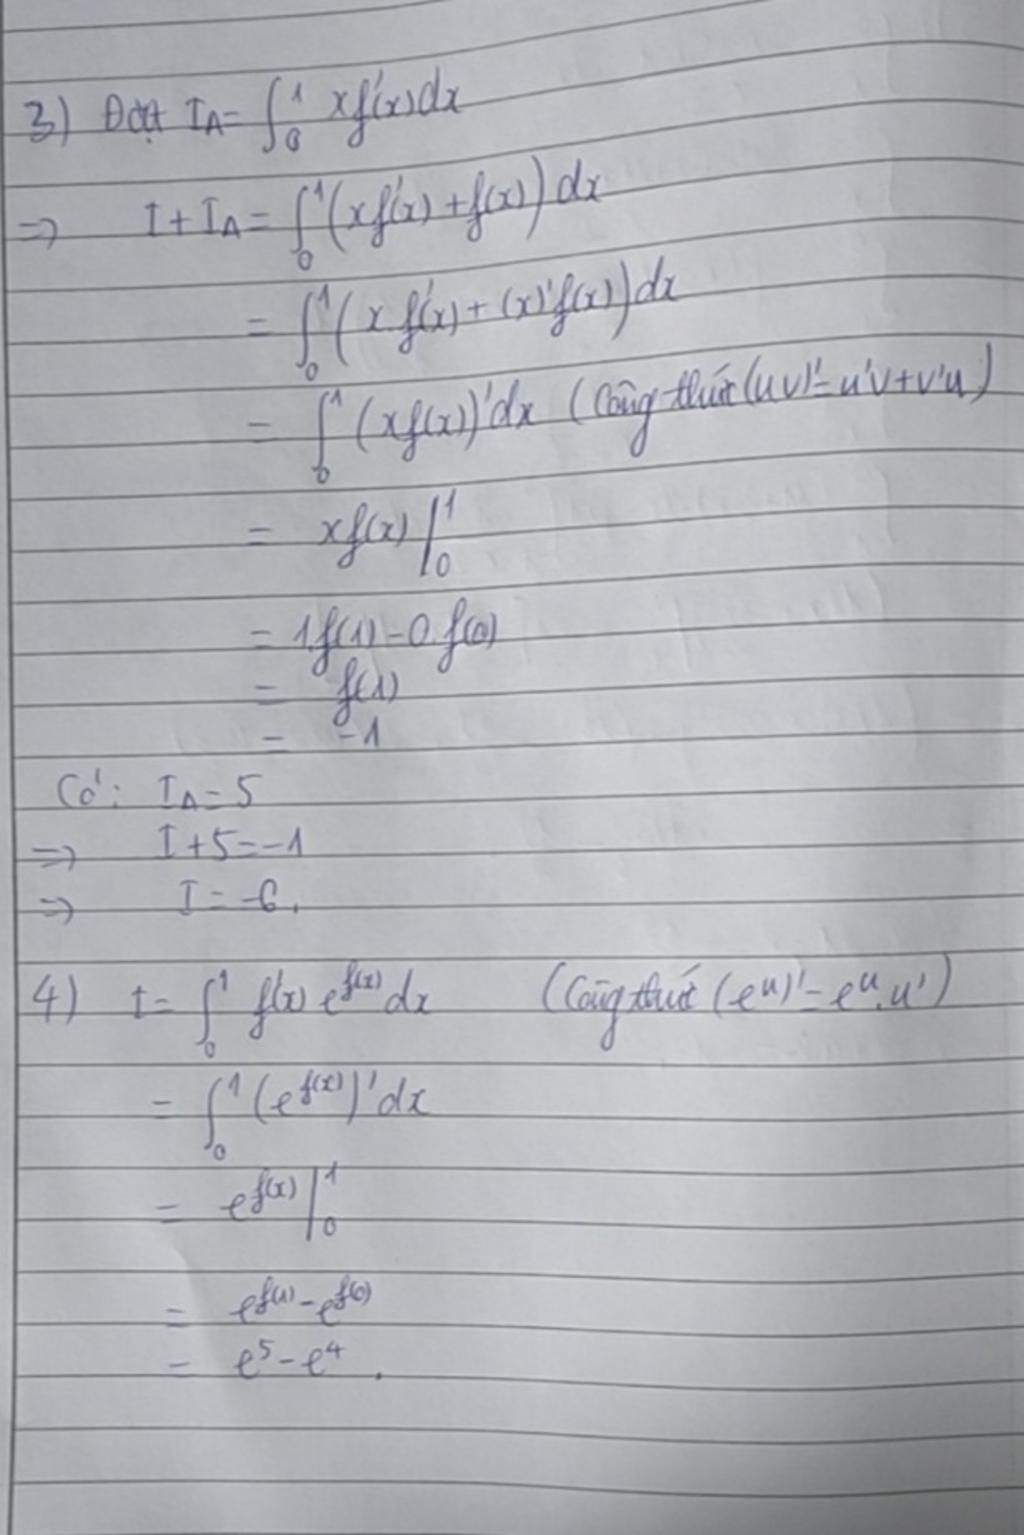 3) Đặt I_A = ∫₀¹ xf'(x)dx
=> I + I_A = ∫₀¹ (xf'(x) + f(x)) dx
= ∫₀¹ (x f'(x) + (x)'f(x)) dx
= ∫₀¹ (xf(x))'dx (Công thức (uv)' = u'v + v'u)
= xf(x) |₀¹
= 1.f(1) - 0.f(0)
= f(1)
= -1
Có: I_A = 5
=> I + 5 = -1
=> I = -6.
4) I = ∫₀¹ f'(x) e^f(x) dx (Công thức (e^u)' = e^u.u')
= ∫₀¹ (e^f(x))' dx
= e^f(x) |₀¹
= e^f(1) - e^f(0)
= e⁵ - e⁴.